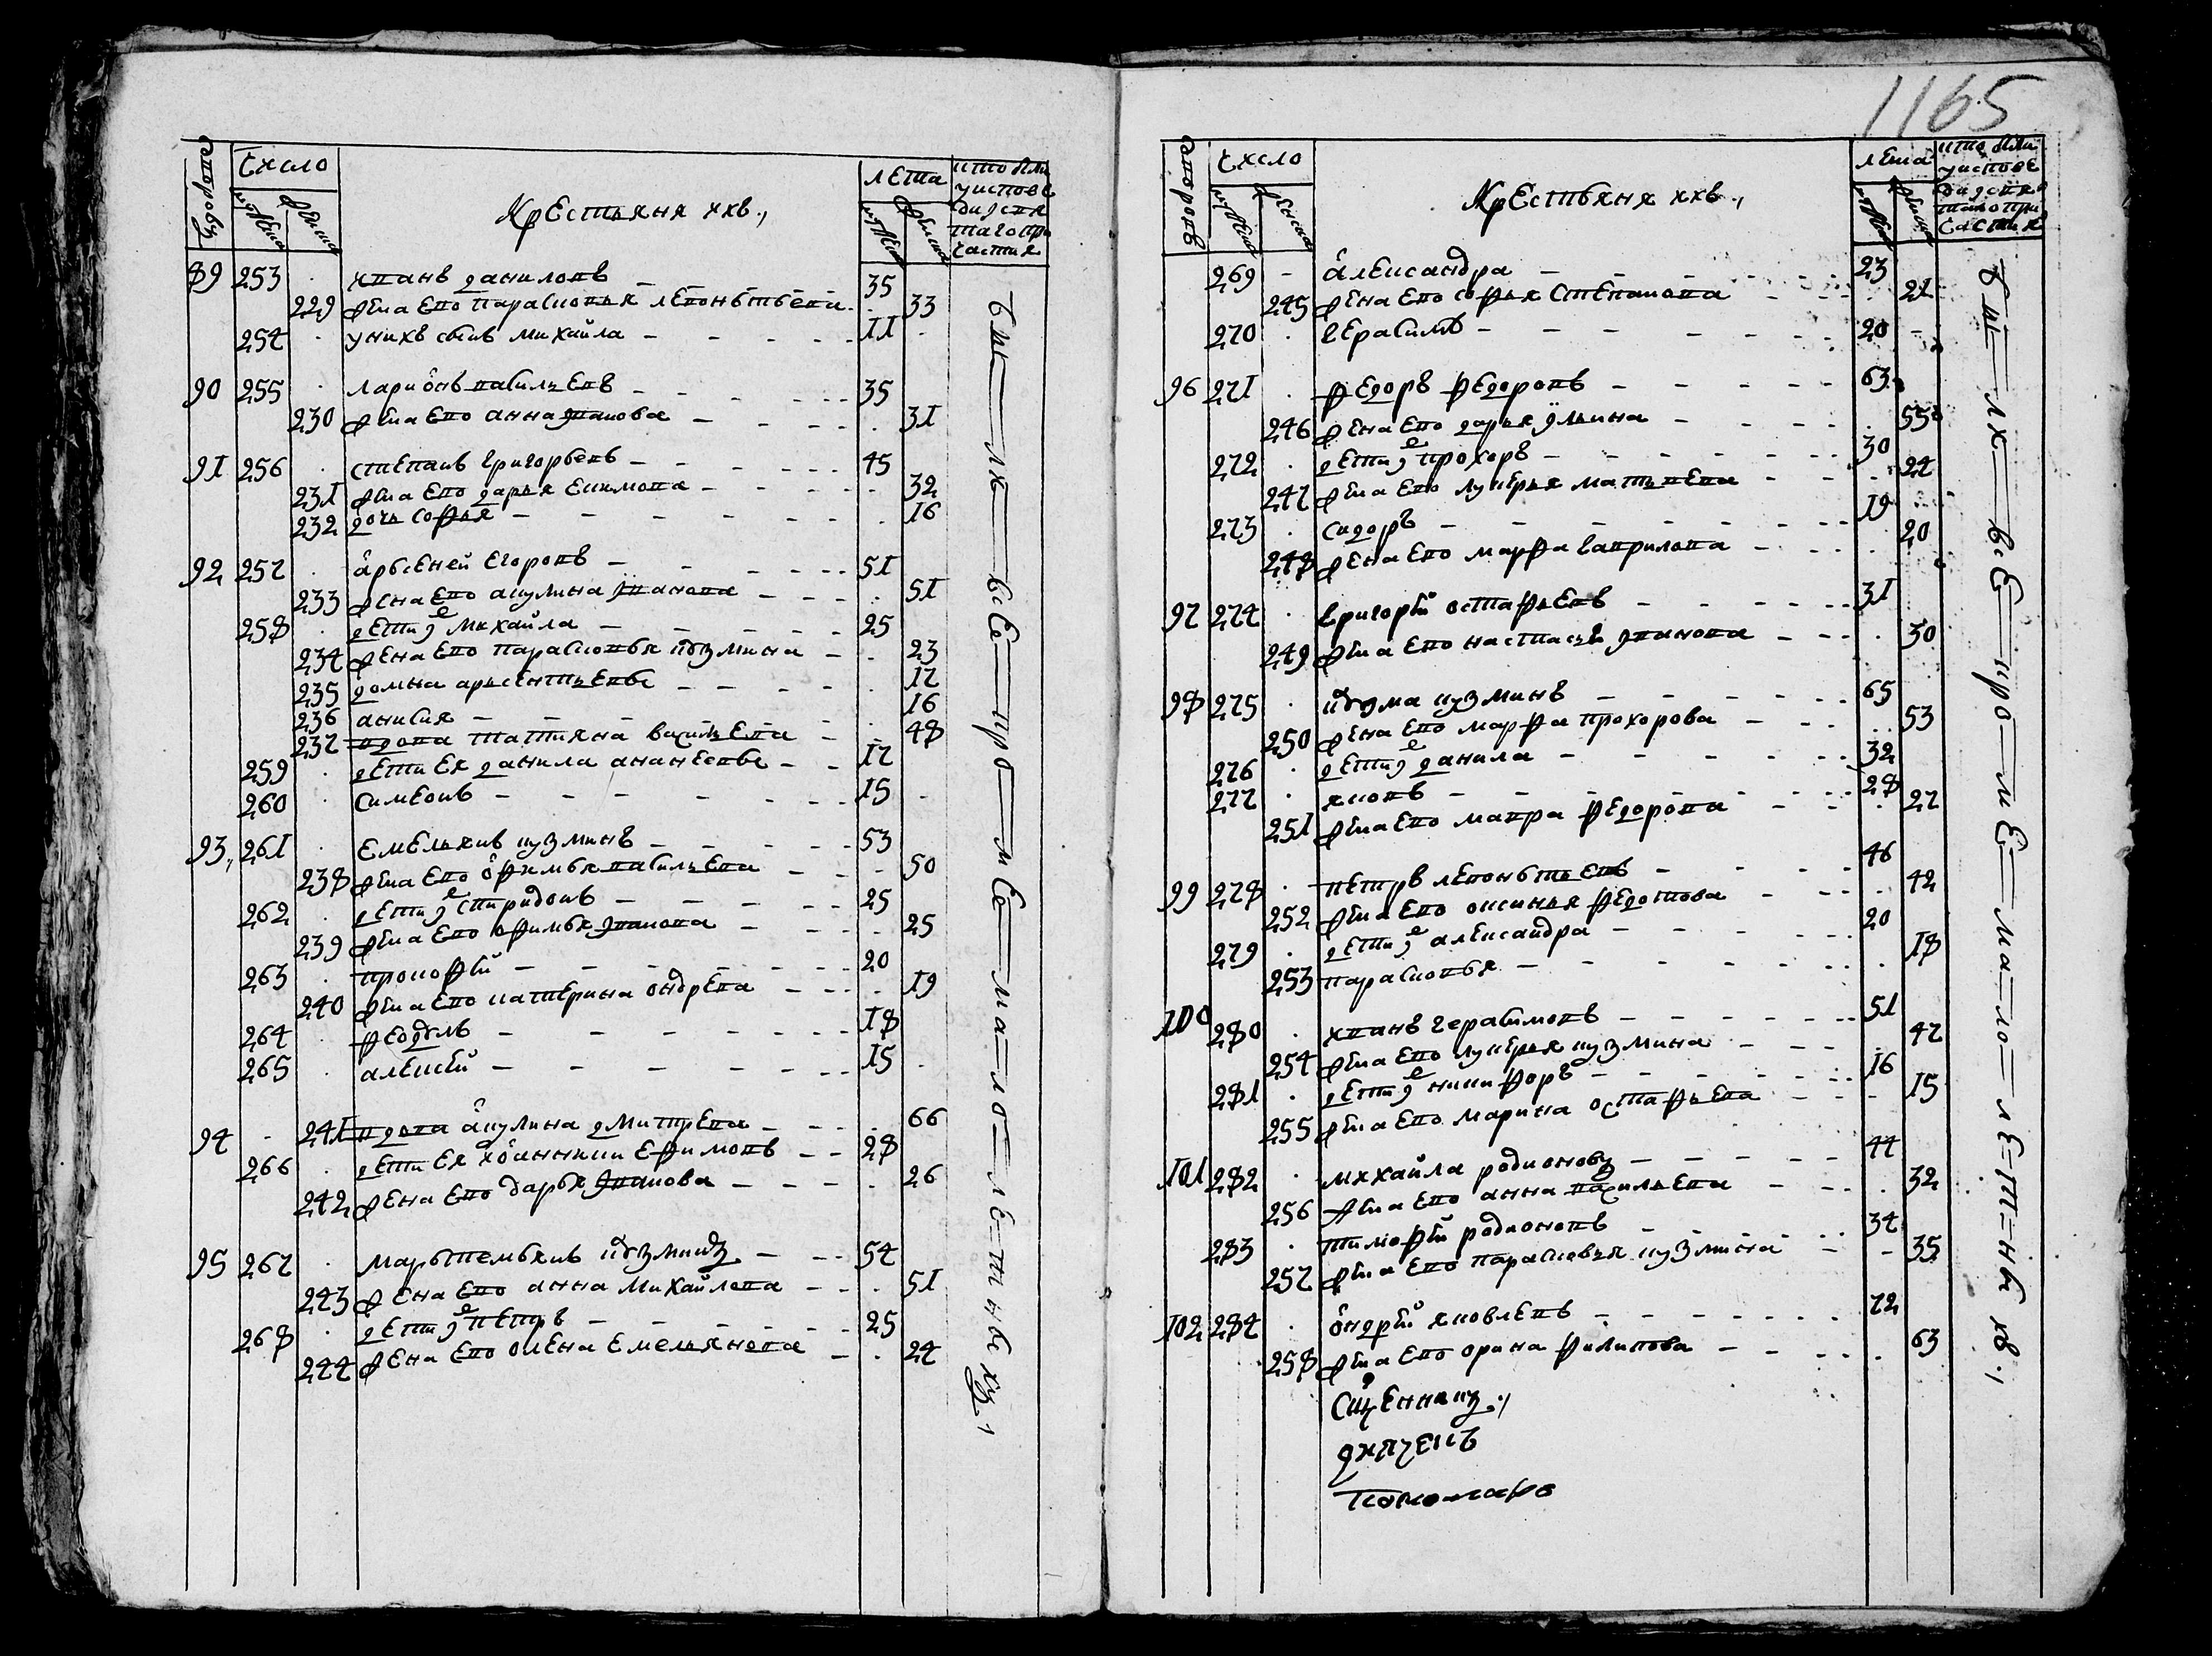 1165
дворовъ
Число
мужеска
женска
Крестьяня ихъ
лета
мужеска
женска
кто были
у испове
ди и свя
таго при
частия
89 253 иванъ даниловъ 35
229 жена ево парасковья левонтьева 33
254 у нихъ сынъ михайла 11
90 255 ларионъ васильевъ 35
230 жена ево анна иванова 31
91 256 степанъ григорьевъ 45
231 жена ево дарья екимова 32
232 дочь софья 16
92 257 арьсеней егоровъ 51
233 жена ево акулина иванова 51
258 дети ? михайла 25
234 жена ево парасковья кузмина 23
235 домна арьсентьевы 17
236 анисия 16
237 вдова татияна васильева 48
259 дети ея данила ананьевы 17
260 симеонъ 15
93 261 емельянъ кузминъ 53
238 жена ево офимья васильева 50
262 дети ? спиридонъ 25
239 жена ево офимья иванова 25
263 прокофей 20
240 жена ево катерина ондрева 19
264 федулъ 18
265 алексей 15
94 241 вдова акулина дмитрева 66
266 дети ея иоанники ефимовъ 28
242 жена ево дарья иванова 26
95 267 марьтемьянъ кузминъ 54
243 жена ево анна михайлова 51
268 дети петръ 25
244 жена ево олена емельянова 24
бы ли все кроме малолетныхъ
дворовъ
Число
мужеска
женска
Крестьяня ихъ
лета
мужеска
женска
кто были
у испове
ди и свя
таго при
частия
269 александра 23
245 жена ево софья степанова 21
270 герасимъ 20
96 271 федоръ федоровъ 63
246 жена ево дарья ильина 55
272 дети прохоръ 30
247 жена ево лукерья матьвева 24
273 сидоръ 19
248 жена ево марфа гаврилова 20
97 274 григорей остафьевъ 31
249 жена ево настасья иванова 30
98 275 кузма кузминъ 65
250 жена ево марфа прохорова 53
276 дети данила 32
277 яковъ 28
251 жена ево мавра федорова 27
99 278 петръ левоньтьевъ 46
252 жена ево оксинья федотова 42
279 дети александра 20
253 парасковья 18
100 280 иванъ герасимовъ 51
254 жена ево лукерья кузмина 47
281 дети никифоръ 16
255 жена ево марина остафьева 15
101 282 михайла родионовъ 44
256 жена ево анна васильева 32
283 тимофей родионовъ 34
257 жена ево парасковья кузмина 35
102 284 ондрей яковлевъ 72
258 жена ево орина филипова 63
Сщенникъ
дьячекъ
пономарь
бы ли все кроме малолетныхъ